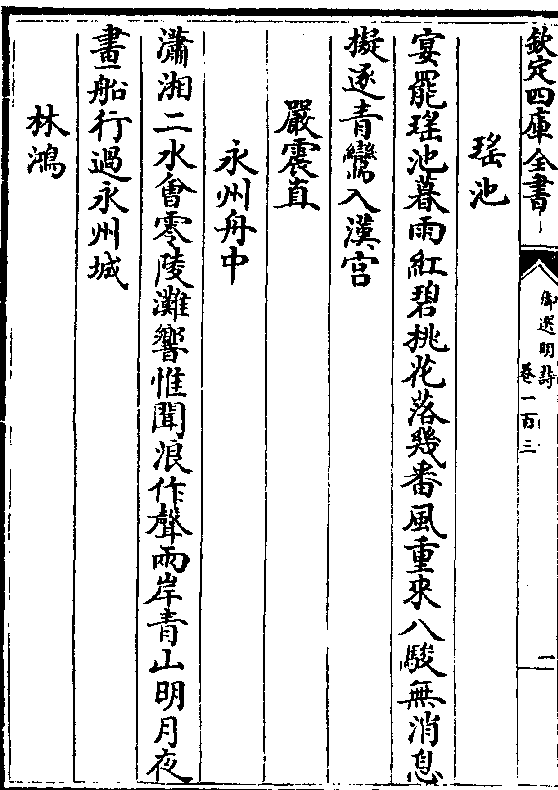 欽定四庫全書
御選明詩
卷一百三
一
瑤池
宴罷瑤池暮雨紅碧桃花落幾番風重來八駿無消息
擬逐青鸞入漢宮
嚴震直
永州舟中
瀟湘二水會零陵灘響惟聞浪作聲兩岸青山明月夜
畫船行過永州城
林鴻